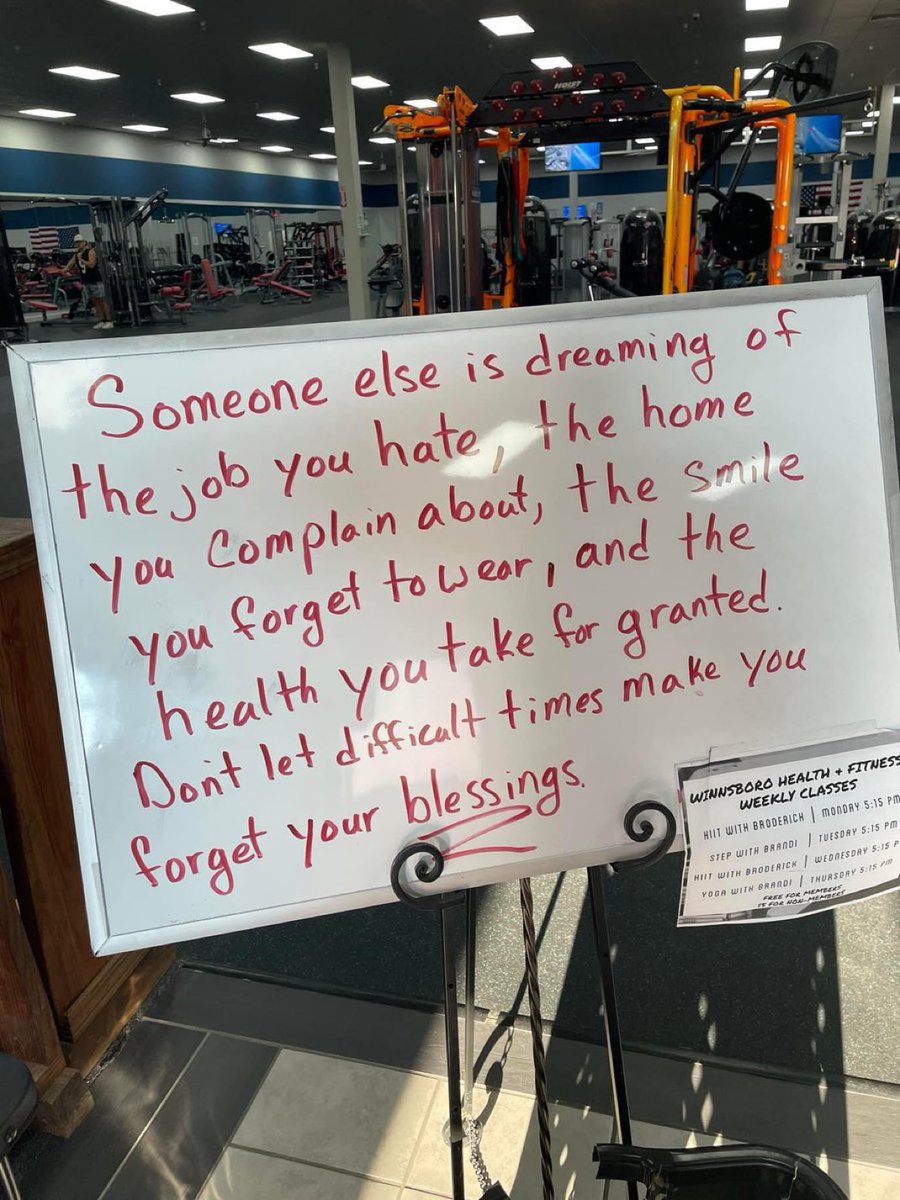 HOIST
Someone else is dreaming of
the job you hate, the home
you Complain about, the smile
you forget to wear, and the
health you take for granted.
Don't let difficult times make you
forget your blessings.
WINNSBORO HEALTH + FITNESS
WEEKLY CLASSES
HIIT WITH BRODERICK | MONDAY 5:15 PM
STEP WITH BRANDI | TUESDAY 5:15 PM
HIIT WITH BRODERICK | WEDNESDAY 5:15 P
YOGA WITH BRANDI | THURSDAY 5:15 PM
FREE FOR MEMBERS
$5 FOR NON-MEMBERS